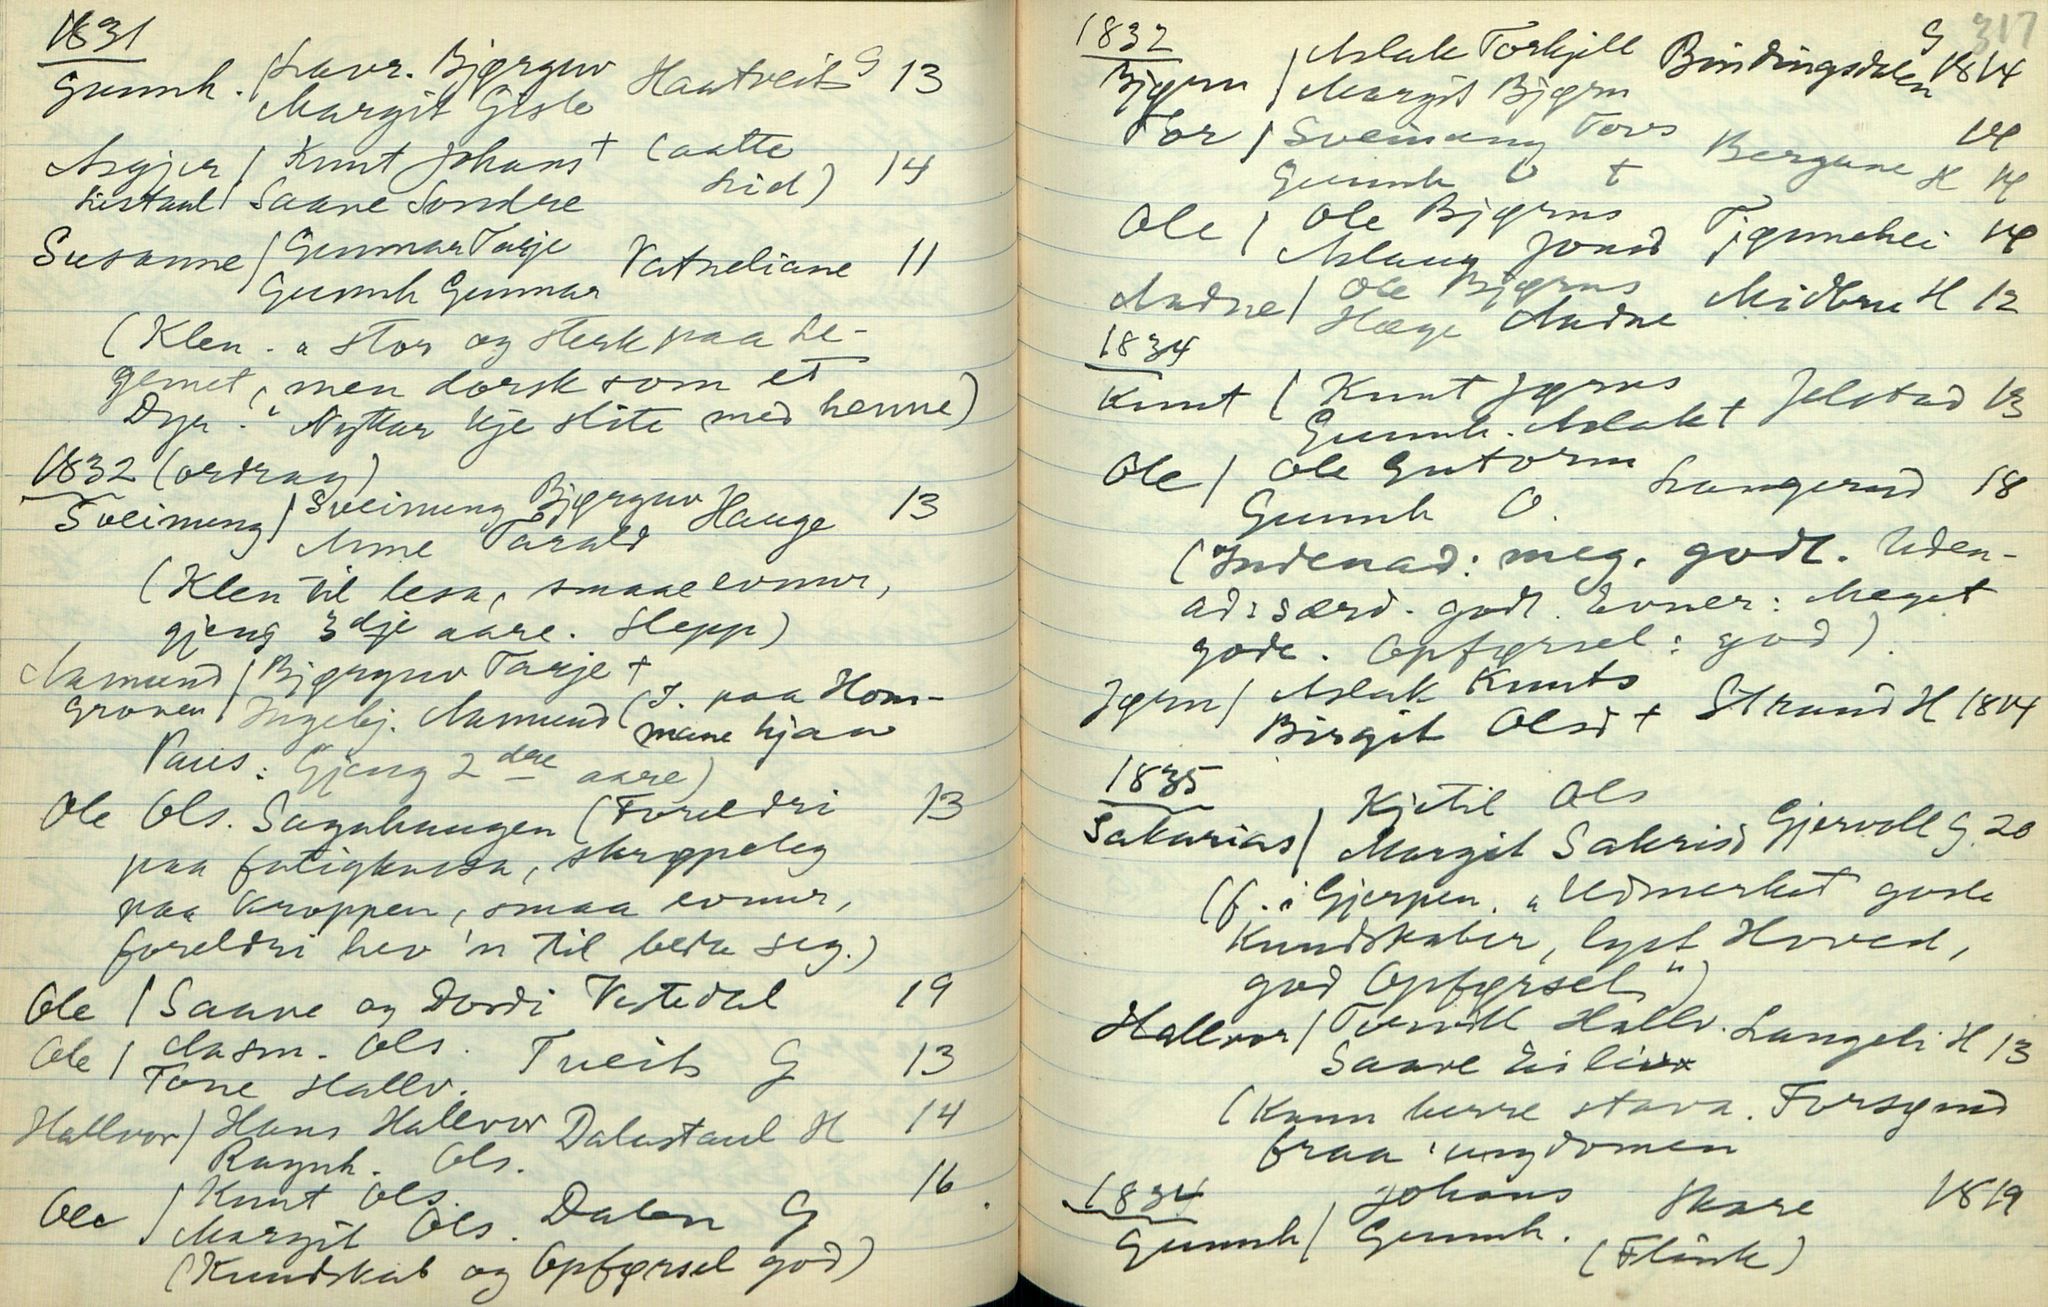 1831
Gunnh. / Lavr. Bjørguv Haatveit G 13
Margit Gisle
Asgjer / Knut Johans + (aatte 14
Listaul / Saave Sondre Lid)
Susanne / Gunnar Tarje Vatneliane 11
Gunnh Gunnar
(Klen. "stor og sterk paa Le-
gemet, men dorsk som et
Dyr." Nyttar ikje slite med henne)
1832 (ordrag)
Sveinung / Sveinung Bjørguv Hauge 13
Anne Tarald
(Klen til lesa, smaae evnur,
gjeng 3dje aare. Slepp)
Aamund / Bjørguv Tarje +
Groven / Ingebj. Aamund (I. paa Hom-
mane hjaa
Vaus: Gjeng 2dre aare)
Ole Ols. Saghaugen (Foreldri 13
paa fatigkassa, skrøpeleg
paa kroppen, smaa evnur,
foreldri hev 'n til beda seg.)
Ole / Saave og Dordi Vestedal 19
Ole / Aasm. Ols. Tveit G 13
Tone Hallv.
Hallvor / Hans Hallvor Dalastaul H 14
Ragnh. Ols.
Ole / Knut Ols. Dalen G 16
Margit Ols.
(Kundskab og Opførsel god)
317
1832
Bjørn / Aslak Torkjell Bindingsdalen G 1814
Margit Bjørn
Tor / Sveinung Tovs Bergane H 14
Gunnh O + 14
Ole / Ole Bjørns Tjønnehei 14
Aslaug Jonsd
Aadne / Ole Bjørns Midbru H 12
Hæge Aadne
1834
Knut / Knut Jørns Jelstad 13
Gunnh. Aslak +
Ole / Ole Gutorm Langerud 18
Gunnh O.
(Indenad: meg. godt. Uden-
ad: særd. godt. Evner: Meget
gode. Opførsel: god).
Jørn / Aslak Knuts Strand H 1814
Birgit Olsd +
1835
Sakarias / Kjetil Ols Gjervoll G. 20
Margit Sakrisd
(f. i Gjerpen. "Udmerket gode
Kundskaber, lyst Hoved,
god Opførsel")
Hallvor / Torvill Hallv. Langeli H 13
Saave Eiliv
(Kann berre stava. Forsømd
fraa ungdomen
1834
Gunnh / Johans Skare 1819
Gunnh. (Flink)